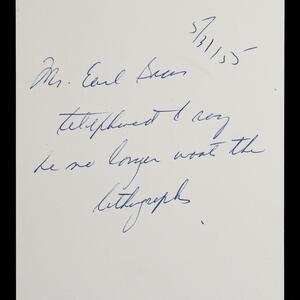 5/31/55
Mr. Earl
telephoned & say
he no longer wants the
lithographs